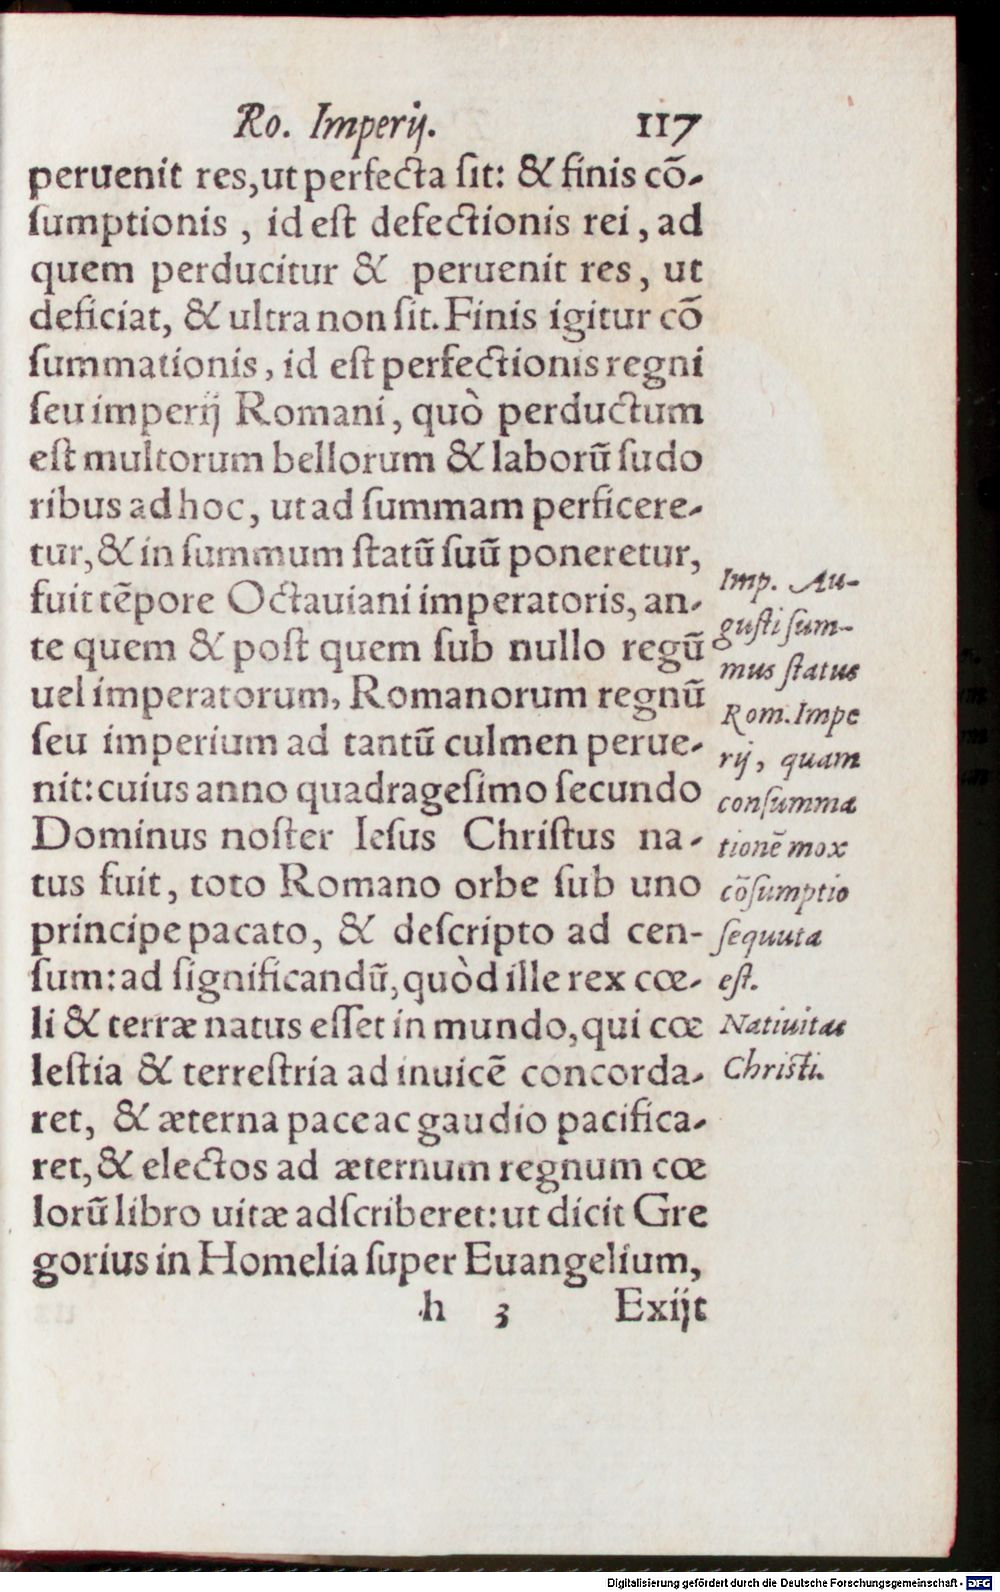 Ro. Imperij. 117
peruenit res, ut perfecta ſit: & finis cõ-
ſumptionis , id eſt defectionis rei , ad
quem perducitur & peruenit res, ut
deficiat, & ultra non ſit. Finis igitur cõ
ſummationis, id eſt perfectionis regni
ſeu imperij Romani, quò perductum
eſt multorum bellorum & laborũ ſudo
ribus ad hoc, ut ad ſummam perficere-
tur, & in ſummum ſtatũ ſuũ poneretur,
fuit tẽpore Octauiani imperatoris, an-
te quem & poſt quem ſub nullo regũ
uel imperatorum, Romanorum regnũ
ſeu imperium ad tantũ culmen perue-
nit: cuius anno quadrageſimo ſecundo
Dominus noſter Ieſus Chriſtus na-
tus fuit, toto Romano orbe ſub uno
principe pacato, & deſcripto ad cen-
ſum: ad ſignificandũ, quòd ille rex cœ-
li & terræ natus eſſet in mundo, qui cœ
leſtia & terreſtria ad inuicẽ concorda-
ret, & æterna pace ac gaudio pacifica-
ret, & electos ad æternum regnum cœ
lorũ libro uitæ adſcriberet: ut dicit Gre
gorius in Homelia ſuper Euangelium,
h 3 Exijt
Imp. Au-
guſti ſum-
mus ſtatus
Rom. Impe
rij, quam
conſumma
tionẽ mox
cõſumptio
ſequuta
eſt.
Natiuitas
Chriſti.
Digitalisierung gefördert durch die Deutsche Forschungsgemeinschaft - DFG